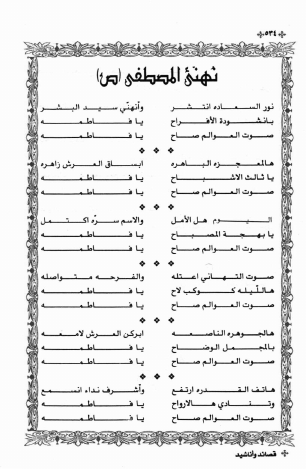 ٥٣٤
نهنئ المصطفى (ص)
نور السعاده انتشر وأنهنّي سيد البشر
بانشودة الأفراح يا فاطمه
صوت العوالم صاح يا فاطمه
هالمعجزه الباهره ابساق العرش زاهره
يا ثالث الاشباح يا فاطمه
صوت العوالم صاح يا فاطمه
اليوم هل الأمل والاسم سرّه اكتمل
يا بهجة المصباح يا فاطمه
صوت العوالم صاح يا فاطمه
صوت التهاني اعتله والفرحه متواصله
هالليله كوكب لاح يا فاطمه
صوت العوالم صاح يا فاطمه
هالجوهره الناصعه ابركن العرش لامعه
بالمجمل الوضاح يا فاطمه
صوت العوالم صاح يا فاطمه
هاتف القدره ارتفع وأشرف نداء انسمع
وتنادي هالارواح يا فاطمه
صوت العوالم صاح يا فاطمه
قصائد وأناشيد